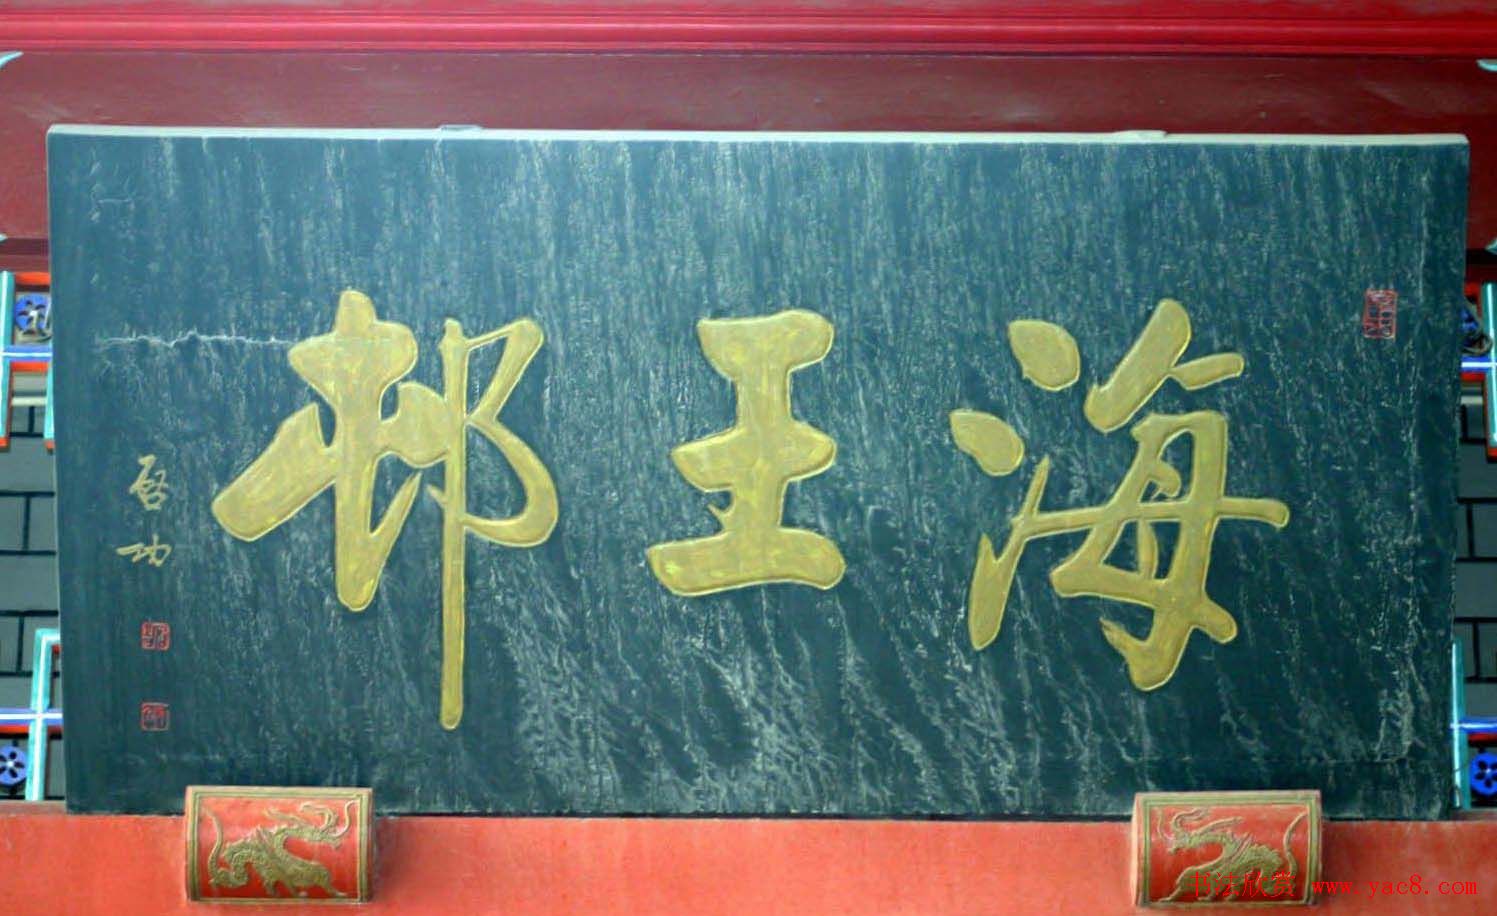 海王邨
启功
书法欣赏 www.yac8.com